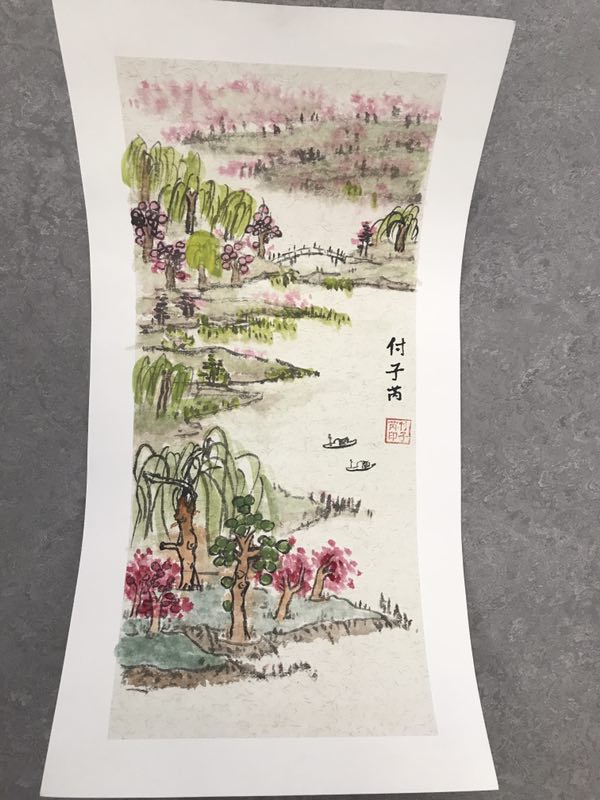 付子芮
付子
芮印